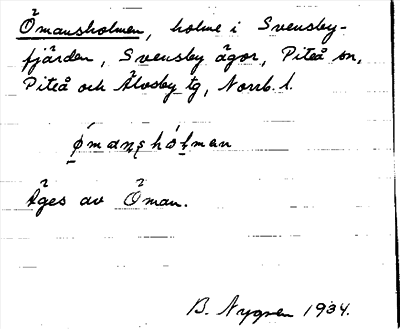 Ömansholmen, holme i Svensby-
fjärden, Svensby ägor, Piteå sn,
Piteå och Älvsby tg, Norrb. l.
Äges av Öman.
B. Nygren 1934.